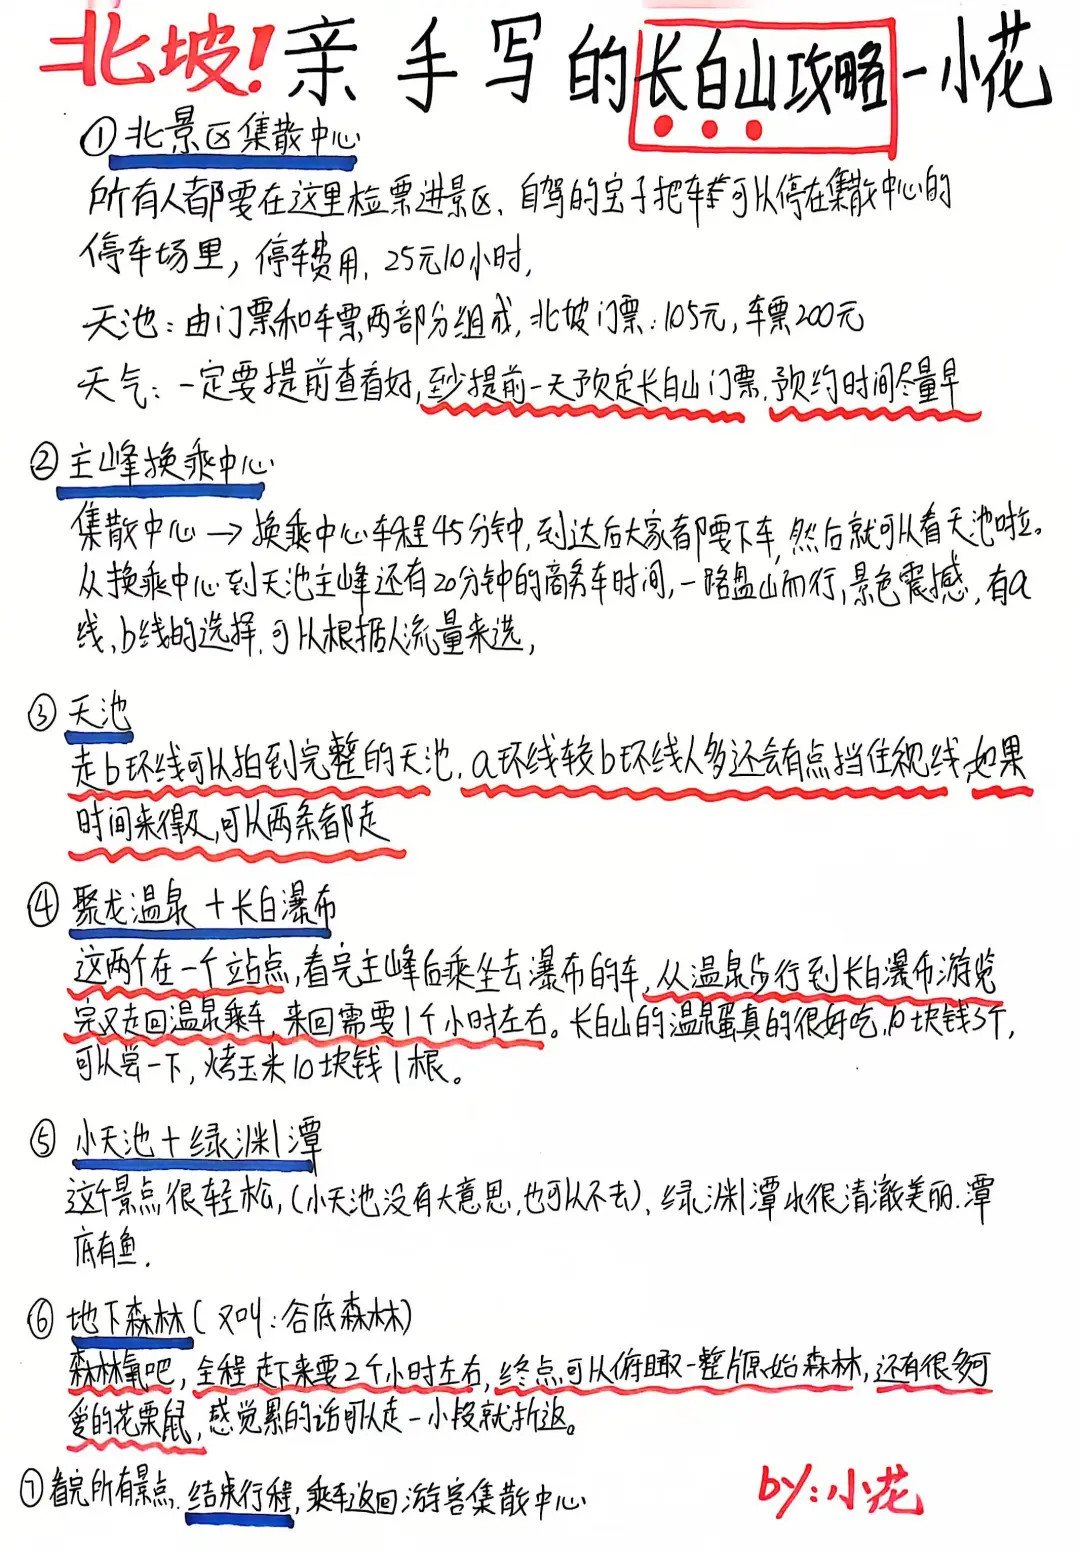 北坡!亲手写的长白山攻略-小花
①北景区集散中心
所有人都要在这里检票进景区、自驾的宝子把车可以停在集散中心的
停车场里，停车费用，25元10小时，
天池：由门票和车票两部分组成，北坡门票：105元，车票200元
天气：一定要提前查看好，至少提前一天预定长白山门票，预约时间尽量早
②主峰换乘中心
集散中心→换乘中心车程45分钟，到达后大家都要下车，然后就可以看天池啦。
从换乘中心到天池主峰还有20分钟的商务车时间，一路盘山而行，景色震撼，有a
线、b线的选择，可以根据人流量来选，
③天池
走b环线可以拍到完整的天池，a环线较b环线人多还会有点挡住视线，如果
时间来得及，可以两条都走
④聚龙温泉+长白瀑布
这两个在一个站点，看完主峰后乘坐去瀑布的车，从温泉步行到长白瀑布游览
完又走回温泉乘车，来回需要1个小时左右。长白山的温泉蛋真的很好吃，10块钱3个，
可以尝一下，烤玉米10块钱1根。
⑤小天池+绿渊潭
这个景点很轻松，(小天池没有大意思，也可以不去)、绿渊潭水很清澈美丽，潭
底有鱼.
⑥地下森林(又叫：谷底森林)
森林氧吧，全程走下来要2个小时左右，终点可以俯瞰一整版原始森林，还有很多可
爱的花栗鼠，感觉累的话可以走一小段就折返。
⑦看完所有景点，结束行程，乘车返回游客集散中心
by:小花